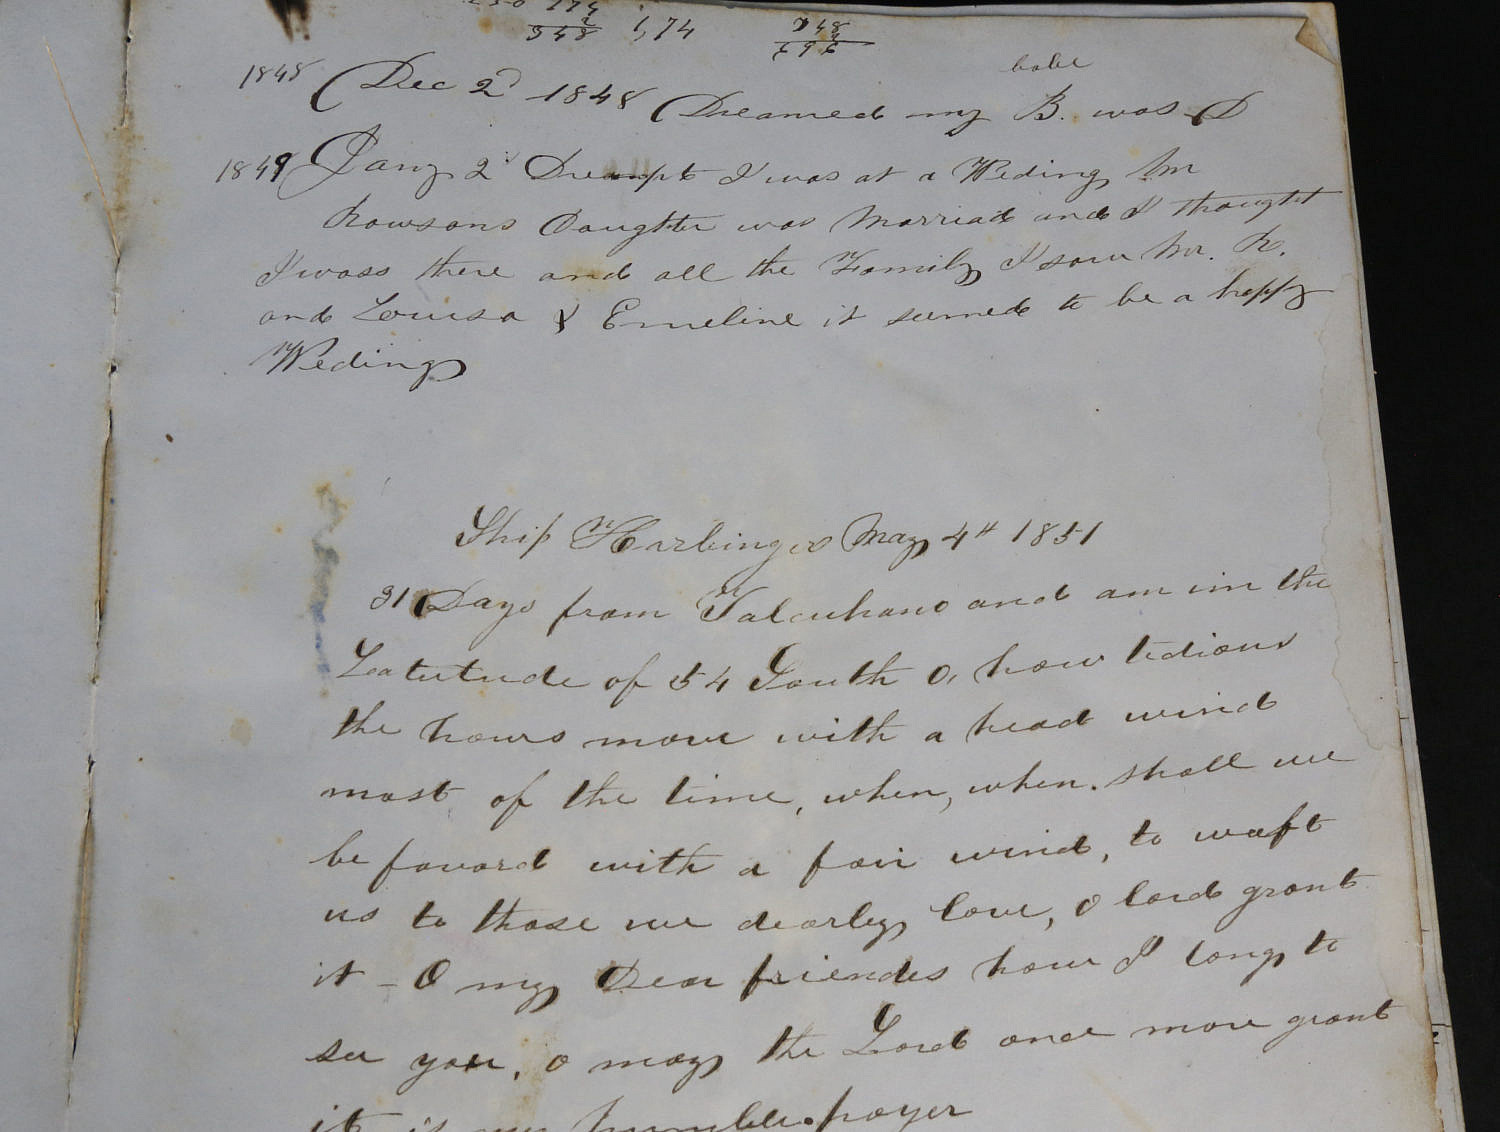 174
2
348 1,74
348
2
696
babe
1848 (Dec 2d 1848 (Dreamed my B. was D
1849 Jany 2d Dreampt I was at a Weding Mr
Rowsons Daughter was Marriad and I thought
I wass there and all the Family I saw Mr. R.
and Louisa & Emeline it seemed to be a happy
Weding
Ship Harbinger May 4th 1851
31 Days from Talcuhano and am im the
Latutude of 54 South O, how tedious
the hours move with a head wind
most of the time, when, when. shall we
be favord with a fair wind, to waft
us to those we dearly love, O lord grant
it - O my Dear friendes how I long to
see you, o may the Lord once more grant
it is my humble prayer